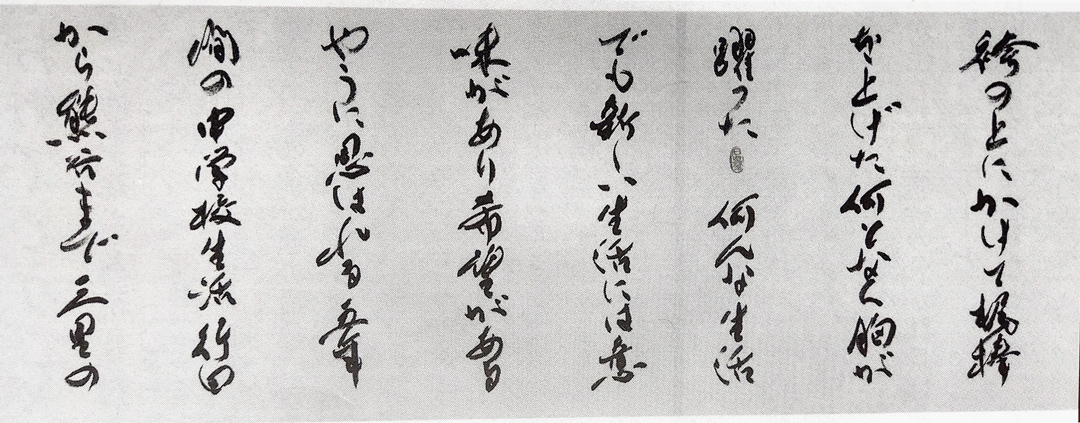 袴の上にかけて梶棒
を上げた何となく胸が
躍つた 何んな生活
でも新しい生活には意
味があり希望がある
やうに思はれる五年
間の中学校生活行田
から熊谷まで三里の